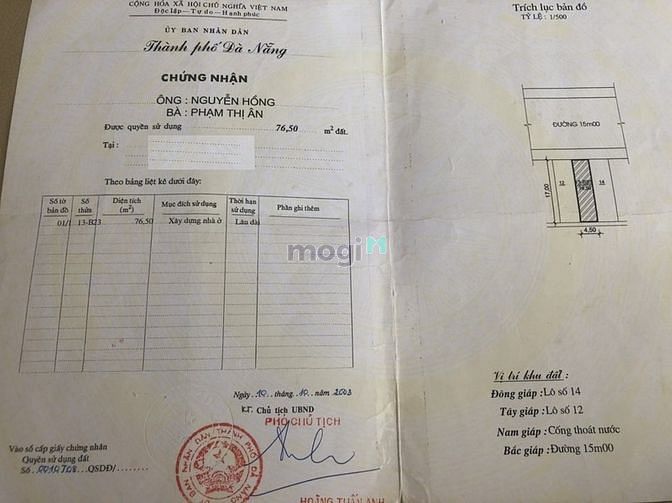 CỘNG HÒA XÃ HỘI CHỦ NGHĨA VIỆT NAM
Độc lập - Tự do - Hạnh phúc
ỦY BAN NHÂN DÂN
Thành phố Đà Nẵng
CHỨNG NHẬN
ÔNG : NGUYỄN HỒNG
BÀ : PHẠM THỊ ÂN
Được quyền sử dụng 76,50 m² đất.
Tại :
Theo bảng liệt kê dưới đây:
Số tờ bản đồ Số thửa Diện tích (m²) Mục đích sử dụng Thời hạn sử dụng Phần ghi thêm
01/1 13-B23 76,50 Xây dựng nhà ở Lâu dài
mogi
Ngày 10 tháng 10 năm 2003
KT. Chủ tịch UBND
PHÓ CHỦ TỊCH
HOÀNG TUẤN ANH
Vào sổ cấp giấy chứng nhận
Quyền sử dụng đất
Số QSDĐ/
Trích lục bản đồ
TỶ LỆ : 1/500
ĐƯỜNG 15m00
17,00
12
14
4,50
Vị trí khu đất :
Đông giáp: Lô số 14
Tây giáp: Lô số 12
Nam giáp: Cống thoát nước
Bắc giáp: Đường 15m00